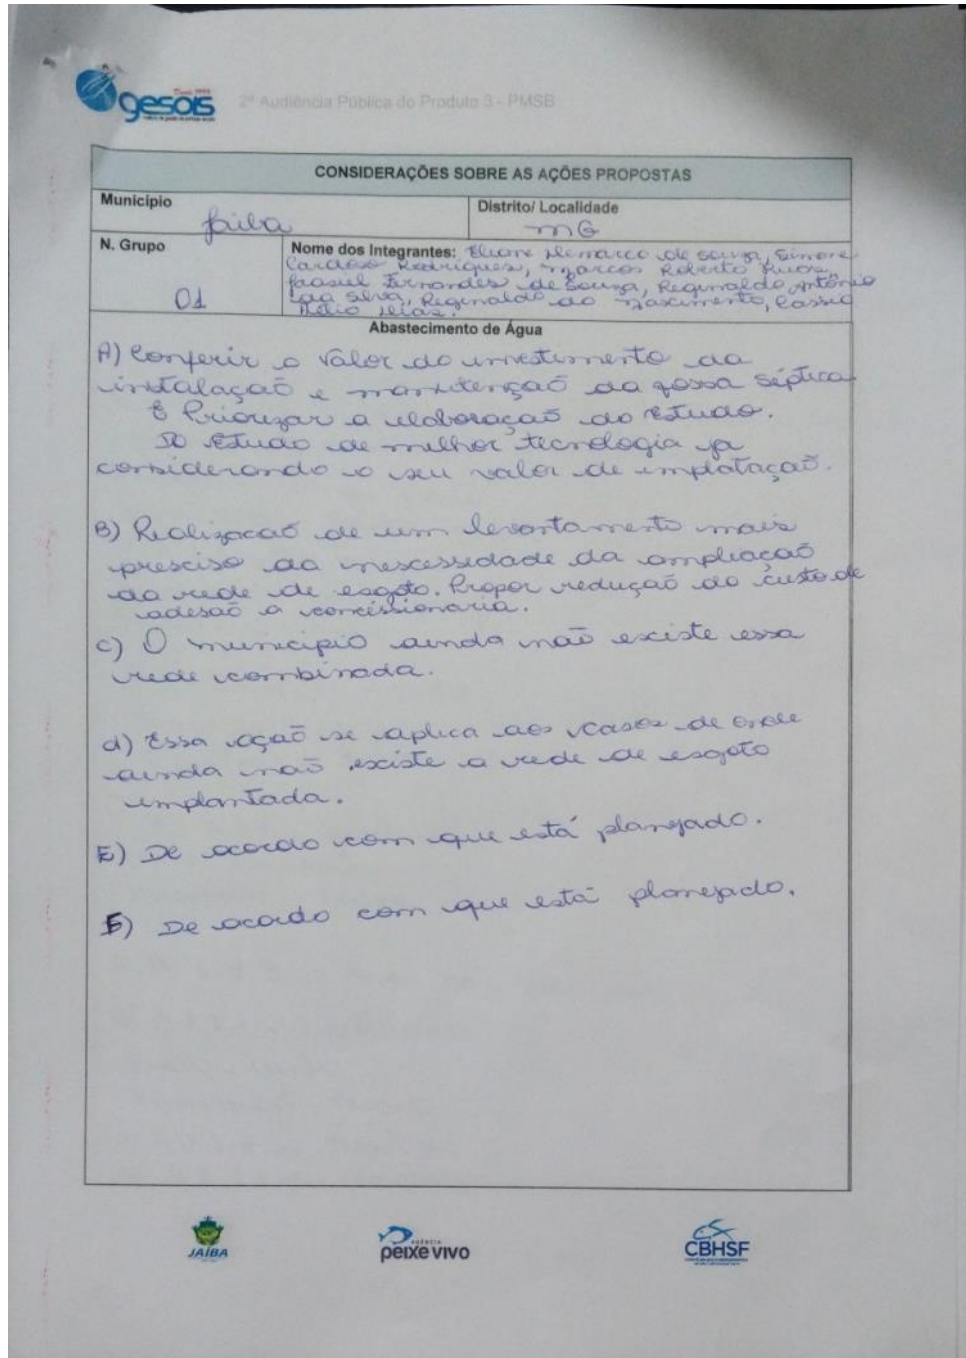 gesois
2ª Audiência Pública do Produto 3 - PMSB
CONSIDERAÇÕES SOBRE AS AÇÕES PROPOSTAS
Município
Jaíba
Distrito/ Localidade
MG
N. Grupo
01
Nome dos Integrantes: Eliane de Souza, Simone
Cardoso Rodrigues, Marcos Roberto
Fernandes de Souza, Reginaldo Antônio
da Silva, Reginaldo do Nascimento, Cassio
Hélio Dias.
Abastecimento de Água
A) Conferir o valor do investimento da
instalação e manutenção da fossa séptica
E Priorizar a elaboração do Estudo.
Estudo de melhor tecnologia ja
considerando o seu valor de implatação.
B) Realizacaõ de um levantamento mais
presciso da nescessidade da ampliação
da rede de esgoto. Propor redução do custo de
adesaõ a concessionaria.
C) O municipio ainda não existe essa
rede combinada.
d) Essa ação se aplica aos casos de onde
ainda não existe a rede de esgoto
implantada.
E) De acordo com que está planejado.
F) De acordo com que está planejado.
JAÍBA
AGÊNCIA
peixe vivo
CBHSF